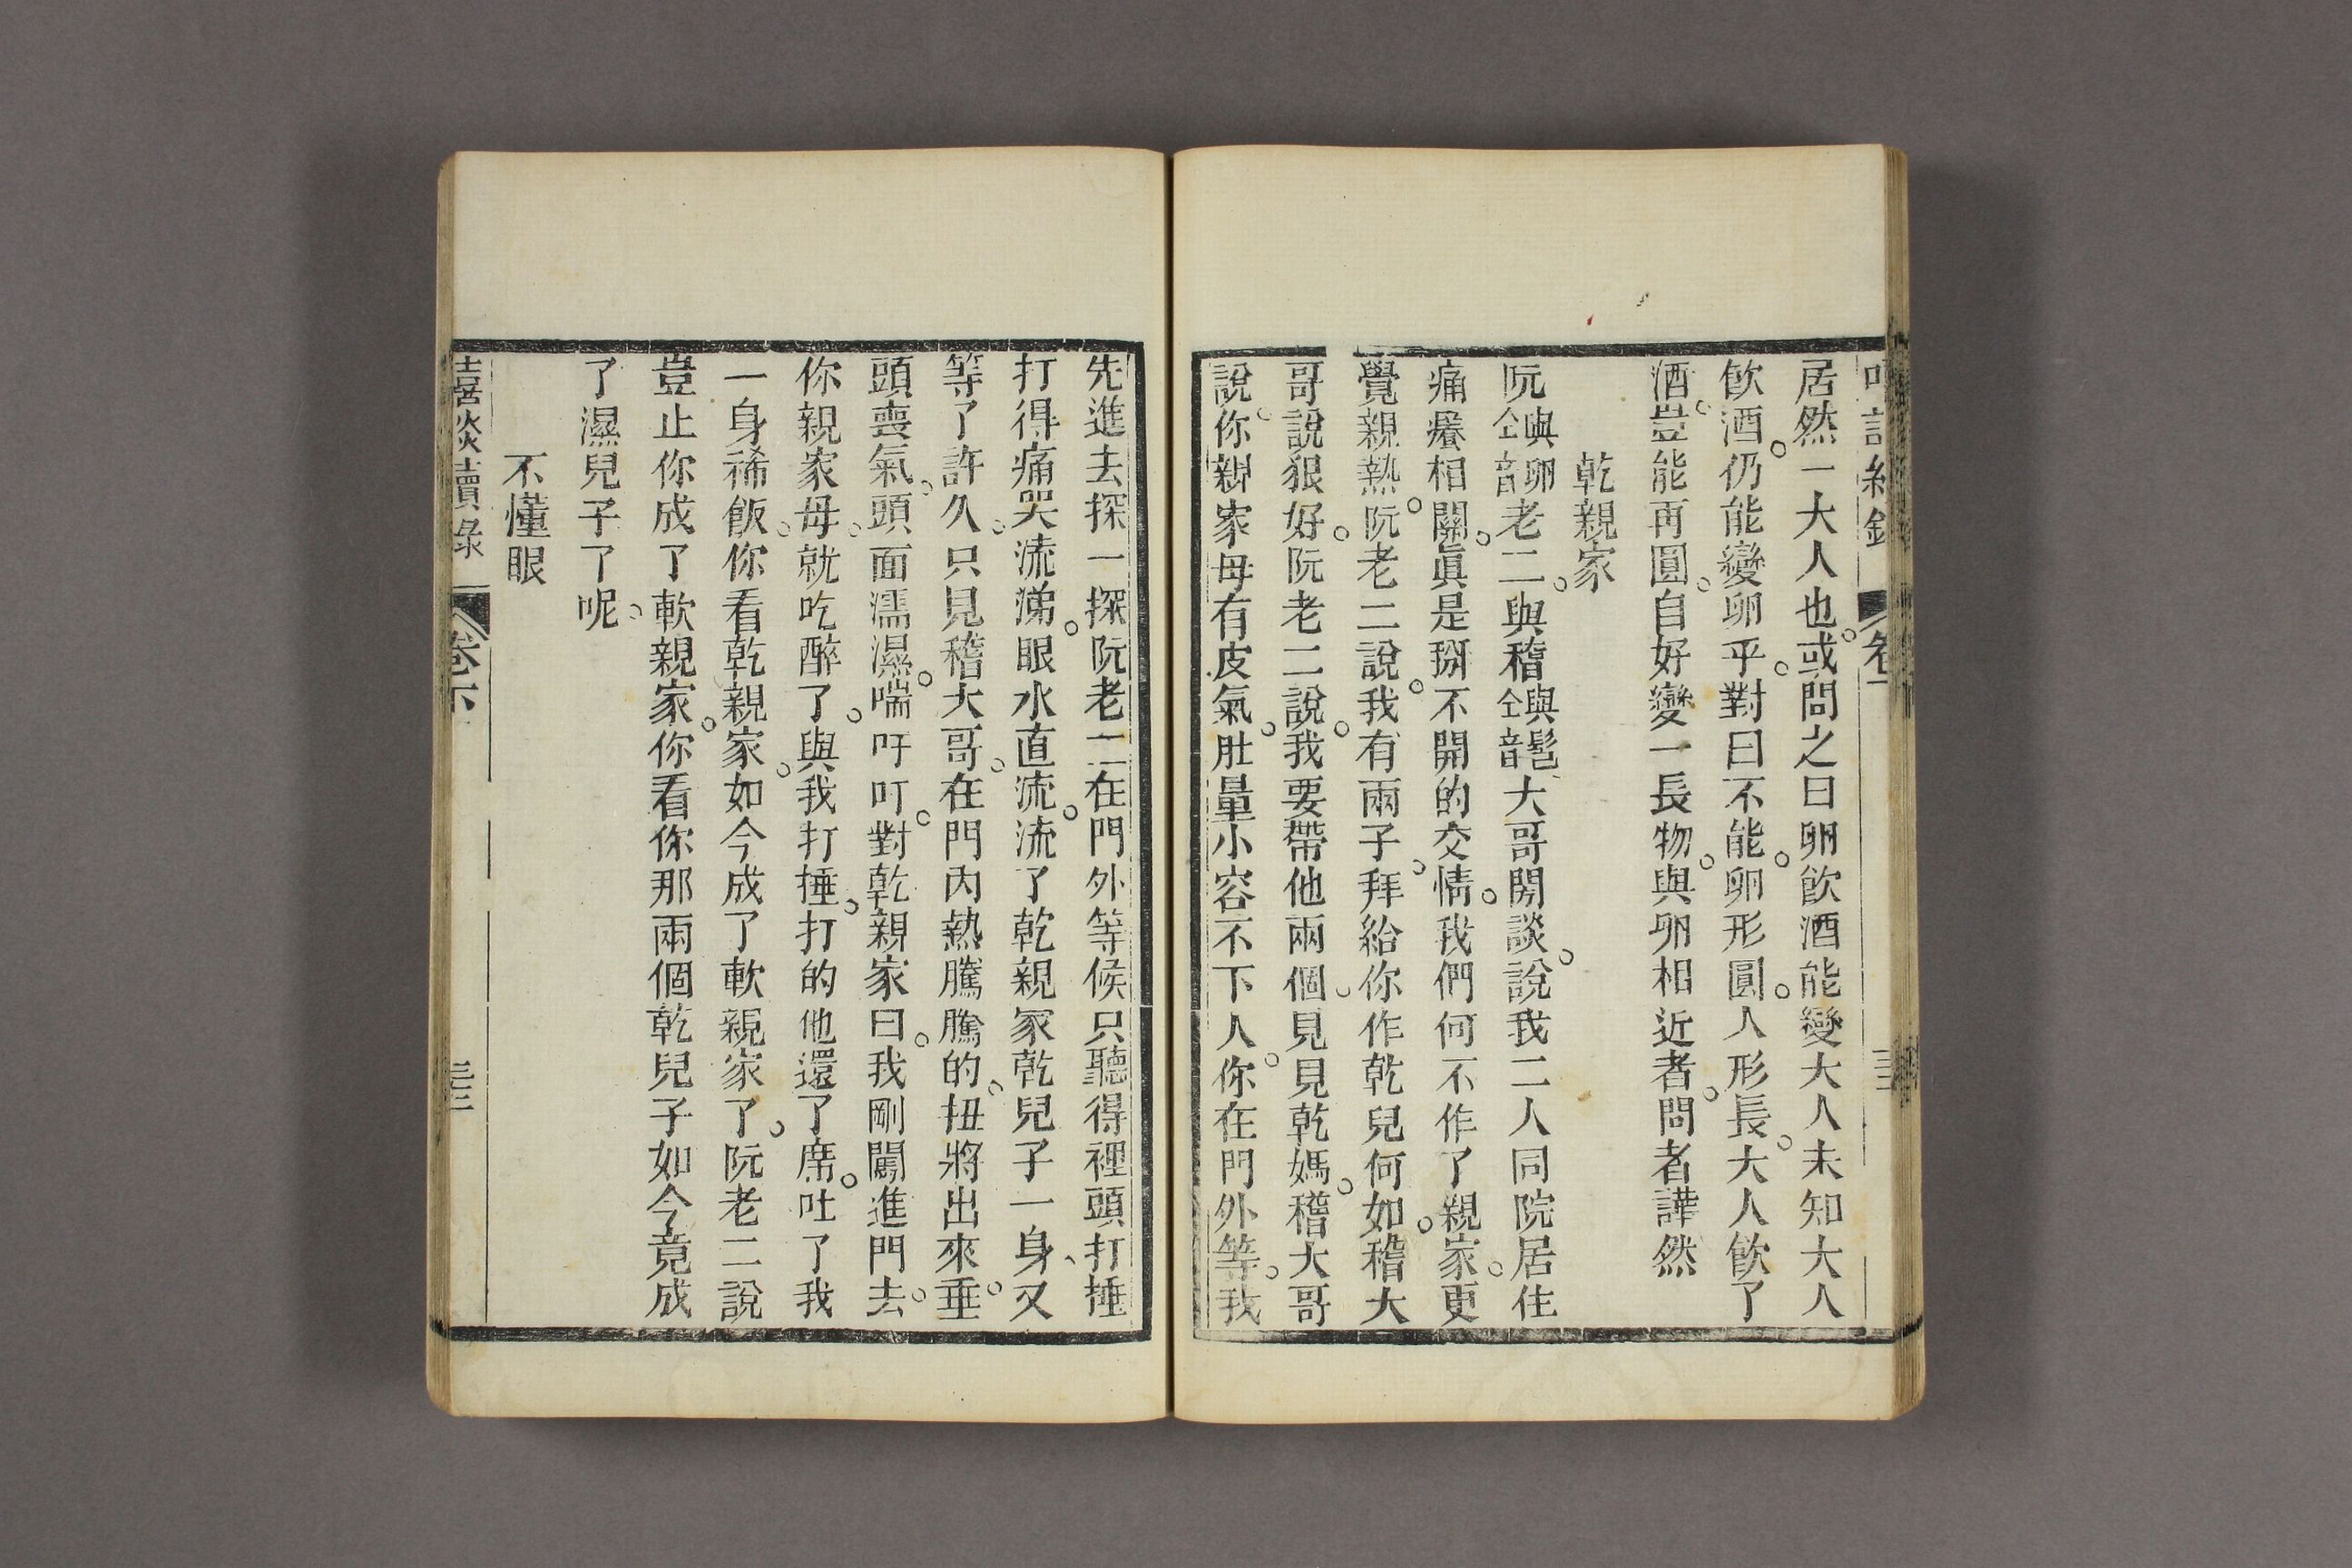 居然一大人也。或問之曰卵飲酒能變大人未知大人
飲酒。仍能變卵乎。對曰不能。卵形圓。人形長。大人飲了
酒。豈能再圓。自好變一長物。與卵相近者。問者譁然
乾親家
阮與卵仝音老二。與稽與髱仝音大哥閒談。說我二人同院居住
痛癢相關。眞是掰不開的交情。我們何不作了親家。更
覺親熱。阮老二說。我有兩子。拜給你作乾兒何如。稽大
哥說狠好。阮老二說。我要帶他兩個。見見乾媽。稽大哥
說。你親家母有皮氣。肚量小容不下人。你在門外等。我
先進去探一探阮老二在門外等候只聽得裡頭打捶
打得痛哭流涕。眼水直流。流了乾親家乾兒子一身、又
等了許久。只見稽大哥。在門內熱騰騰的。扭將出來。垂
頭喪氣。頭面濡濕。喘吁叮。對乾親家曰。我剛闖進門去。
你親家母。就吃醉了。與我打捶。打的他還了席。吐了我
一身稀飯。你看乾親家。如今成了軟親家了。阮老二說
豈止你成了軟親家。你看你那兩個乾兒子如今竟成
了濕兒子了呢。
不懂眼
嘻談續錄
卷下
三三